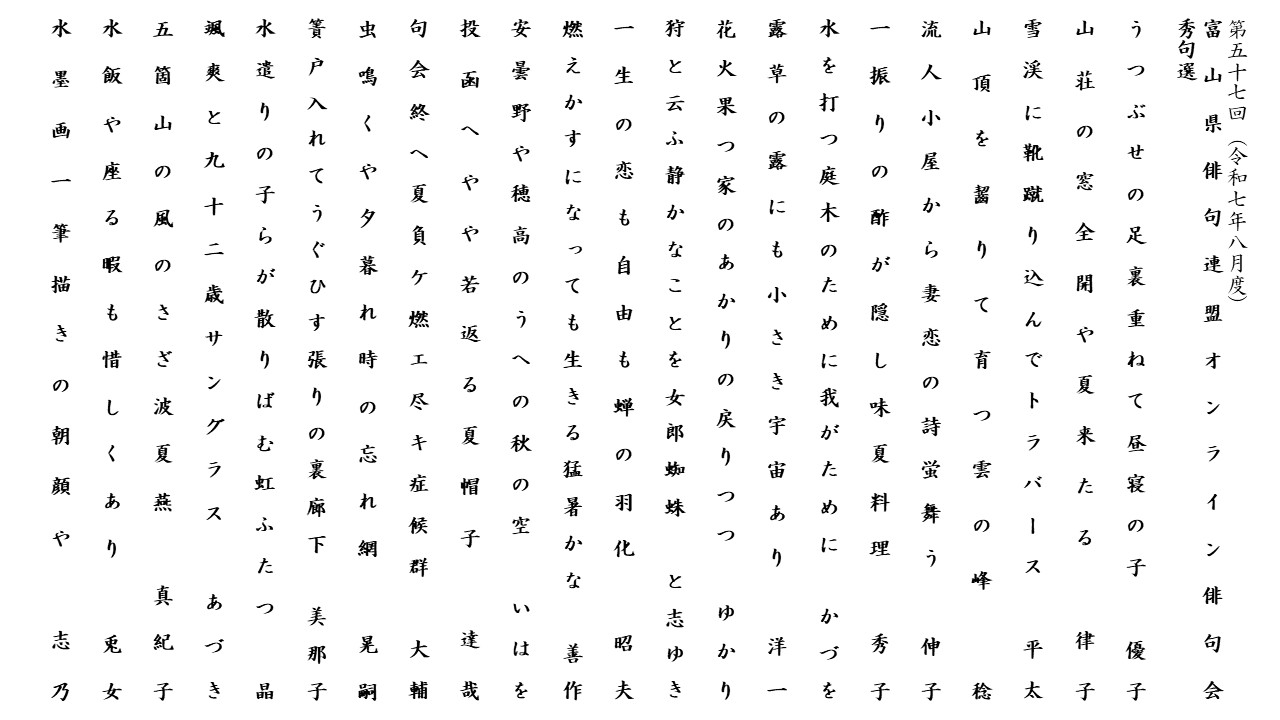 第五十七回（令和七年八月度）
富山県俳句連盟オンライン俳句会
秀句選
うつぶせの足裏重ねて昼寝の子　優子
山荘の窓全開や夏来たる　律子
雪渓に靴蹴り込んでトラバース　平太
山頂を齧りて育つ雲の峰　稔
流人小屋から妻恋の詩蛍舞う　伸子
一振りの酢が隠し味夏料理　秀子
水を打つ庭木のために我がために　かづを
露草の露にも小さき宇宙あり　洋一
花火果つ家のあかりの戻りつつ　ゆかり
狩と云ふ静かなことを女郎蜘蛛　と志ゆき
一生の恋も自由も蝉の羽化　昭夫
燃えかすになっても生きる猛暑かな　善作
安曇野や穂高のうへの秋の空　いはを
投函へやや若返る夏帽子　達哉
句会終へ夏負ケ燃エ尽キ症候群　大輔
虫鳴くや夕暮れ時の忘れ網　晃嗣
簀戸入れてうぐひす張りの裏廊下　美那子
水遣りの子らが散りばむ虹ふたつ　晶
颯爽と九十二歳サングラス　あづき
五箇山の風のさざ波夏燕　真紀子
水飯や座る暇も惜しくあり　兎女
水墨画一筆描きの朝顔や　志乃